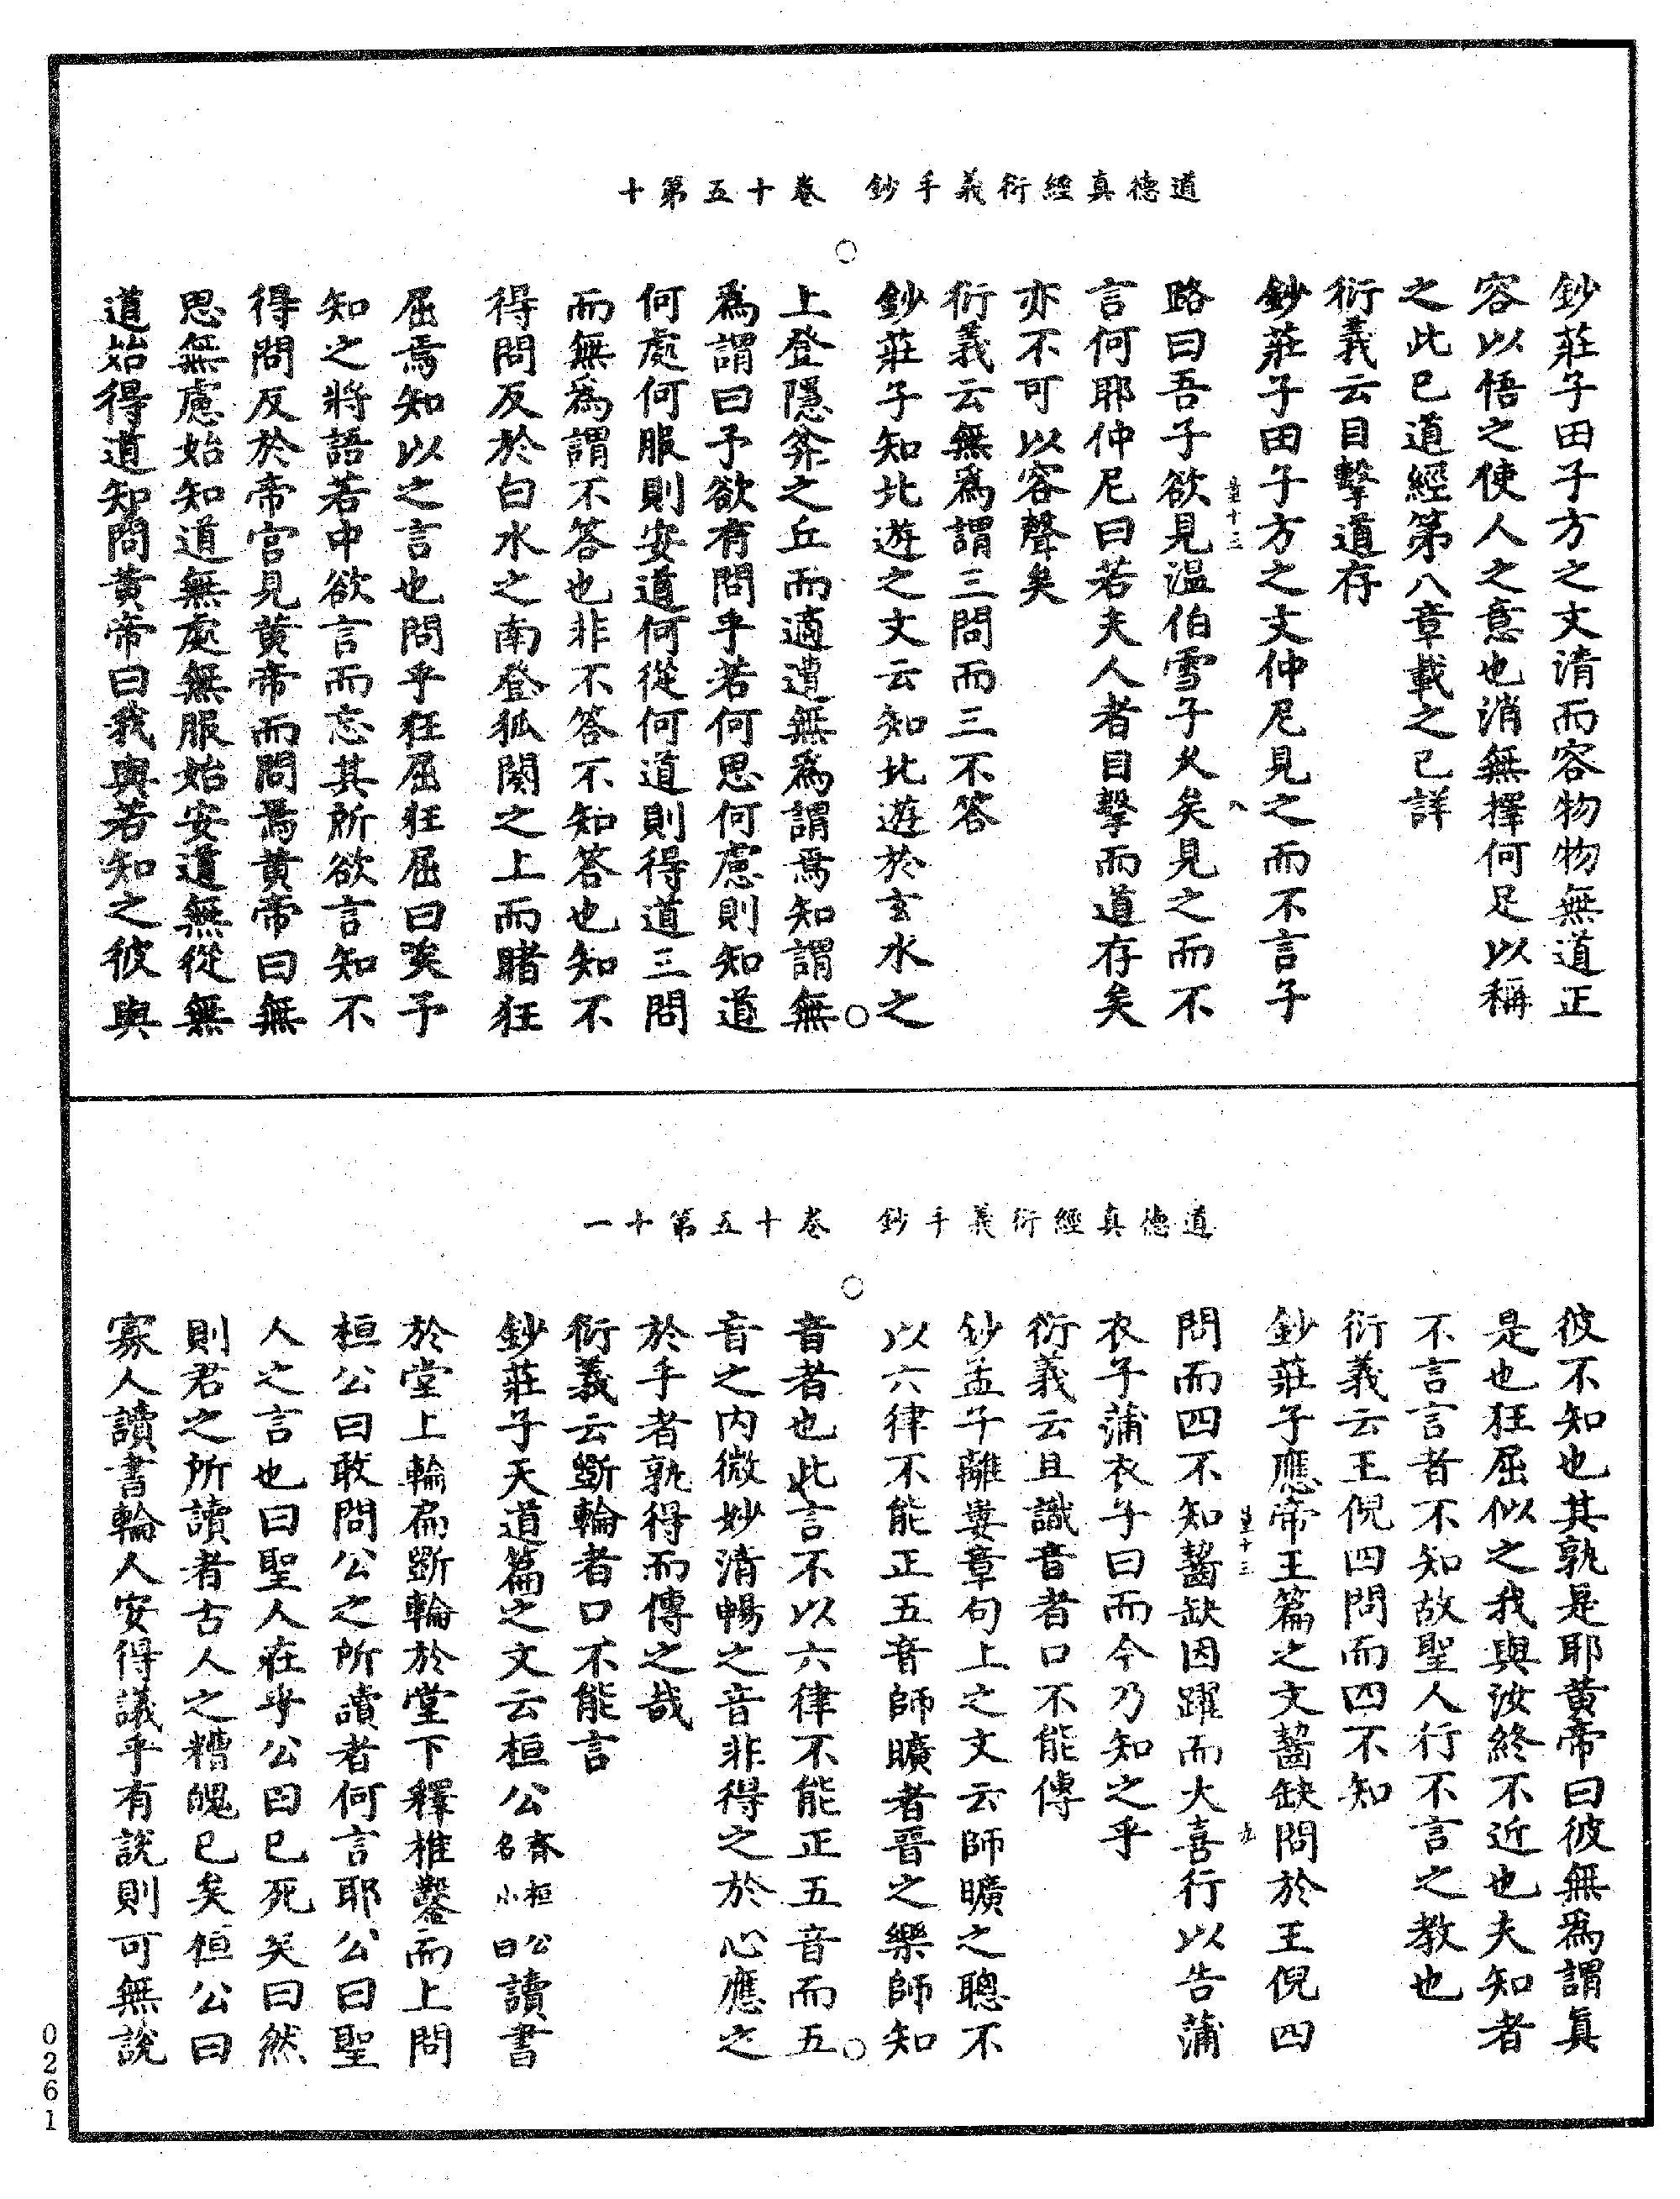 道德真經衍義手鈔 卷十五第十
鈔莊子田子方之文清而容物物無道正
容以悟之使人之意也消無擇何足以稱
之此已道經第八章載之已詳
衍義云目擊道存
鈔莊子田子方之文仲尼見之而不言子
路曰吾子欲見温伯雪子乆矣見之而不
言何耶仲尼曰若夫人者目擊而道存矣
亦不可以容聲矣
衍義云無爲謂三問而三不答
鈔莊子知北遊之文云知北遊於玄水之
上登隱弅之丘而適遭無爲謂焉知謂無
爲謂曰予欲有問乎若何思何慮則知道
何處何服則安道何從何道則得道三問
而無爲謂不答也非不答不知答也知不
得問反於白水之南登狐闋之上而睹狂
屈焉知以之言也問乎狂屈狂屈曰唉予
知之將語若中欲言而忘其所欲言知不
得問反於帝宫見黄帝而問焉黄帝曰無
思無慮始知道無處無服始安道無從無
道始得道知問黄帝曰我與若知之彼與
道德真經衍義手鈔 卷十五第十一
彼不知也其孰是耶黄帝曰彼無爲謂真
是也狂屈似之我與汝終不近也夫知者
不言言者不知故聖人行不言之教也
衍義云王倪四問而四不知
鈔莊子應帝王篇之文齧缺問於王倪四
問而四不知齧缺因躍而大喜行以告蒲
衣子蒲衣子曰而今乃知之乎
衍義云且識音者口不能傳
鈔孟子離婁章句上之文云師曠之聰不
以六律不能正五音師曠者晉之樂師知
音者也此言不以六律不能正五音而五
音之内微妙清暢之音非得之於心應之
於手者孰得而傳之哉
衍義云斲輪者口不能言
鈔莊子天道篇之文云桓公齊桓公名小白讀書
於堂上輪扁斲輪於堂下釋椎鑿而上問
桓公曰敢問公之所讀者何言耶公曰聖
人之言也曰聖人在乎公曰已死矣曰然
則君之所讀者古人之糟魄已矣桓公曰
寡人讀書輪人安得議乎有說則可無說
0261